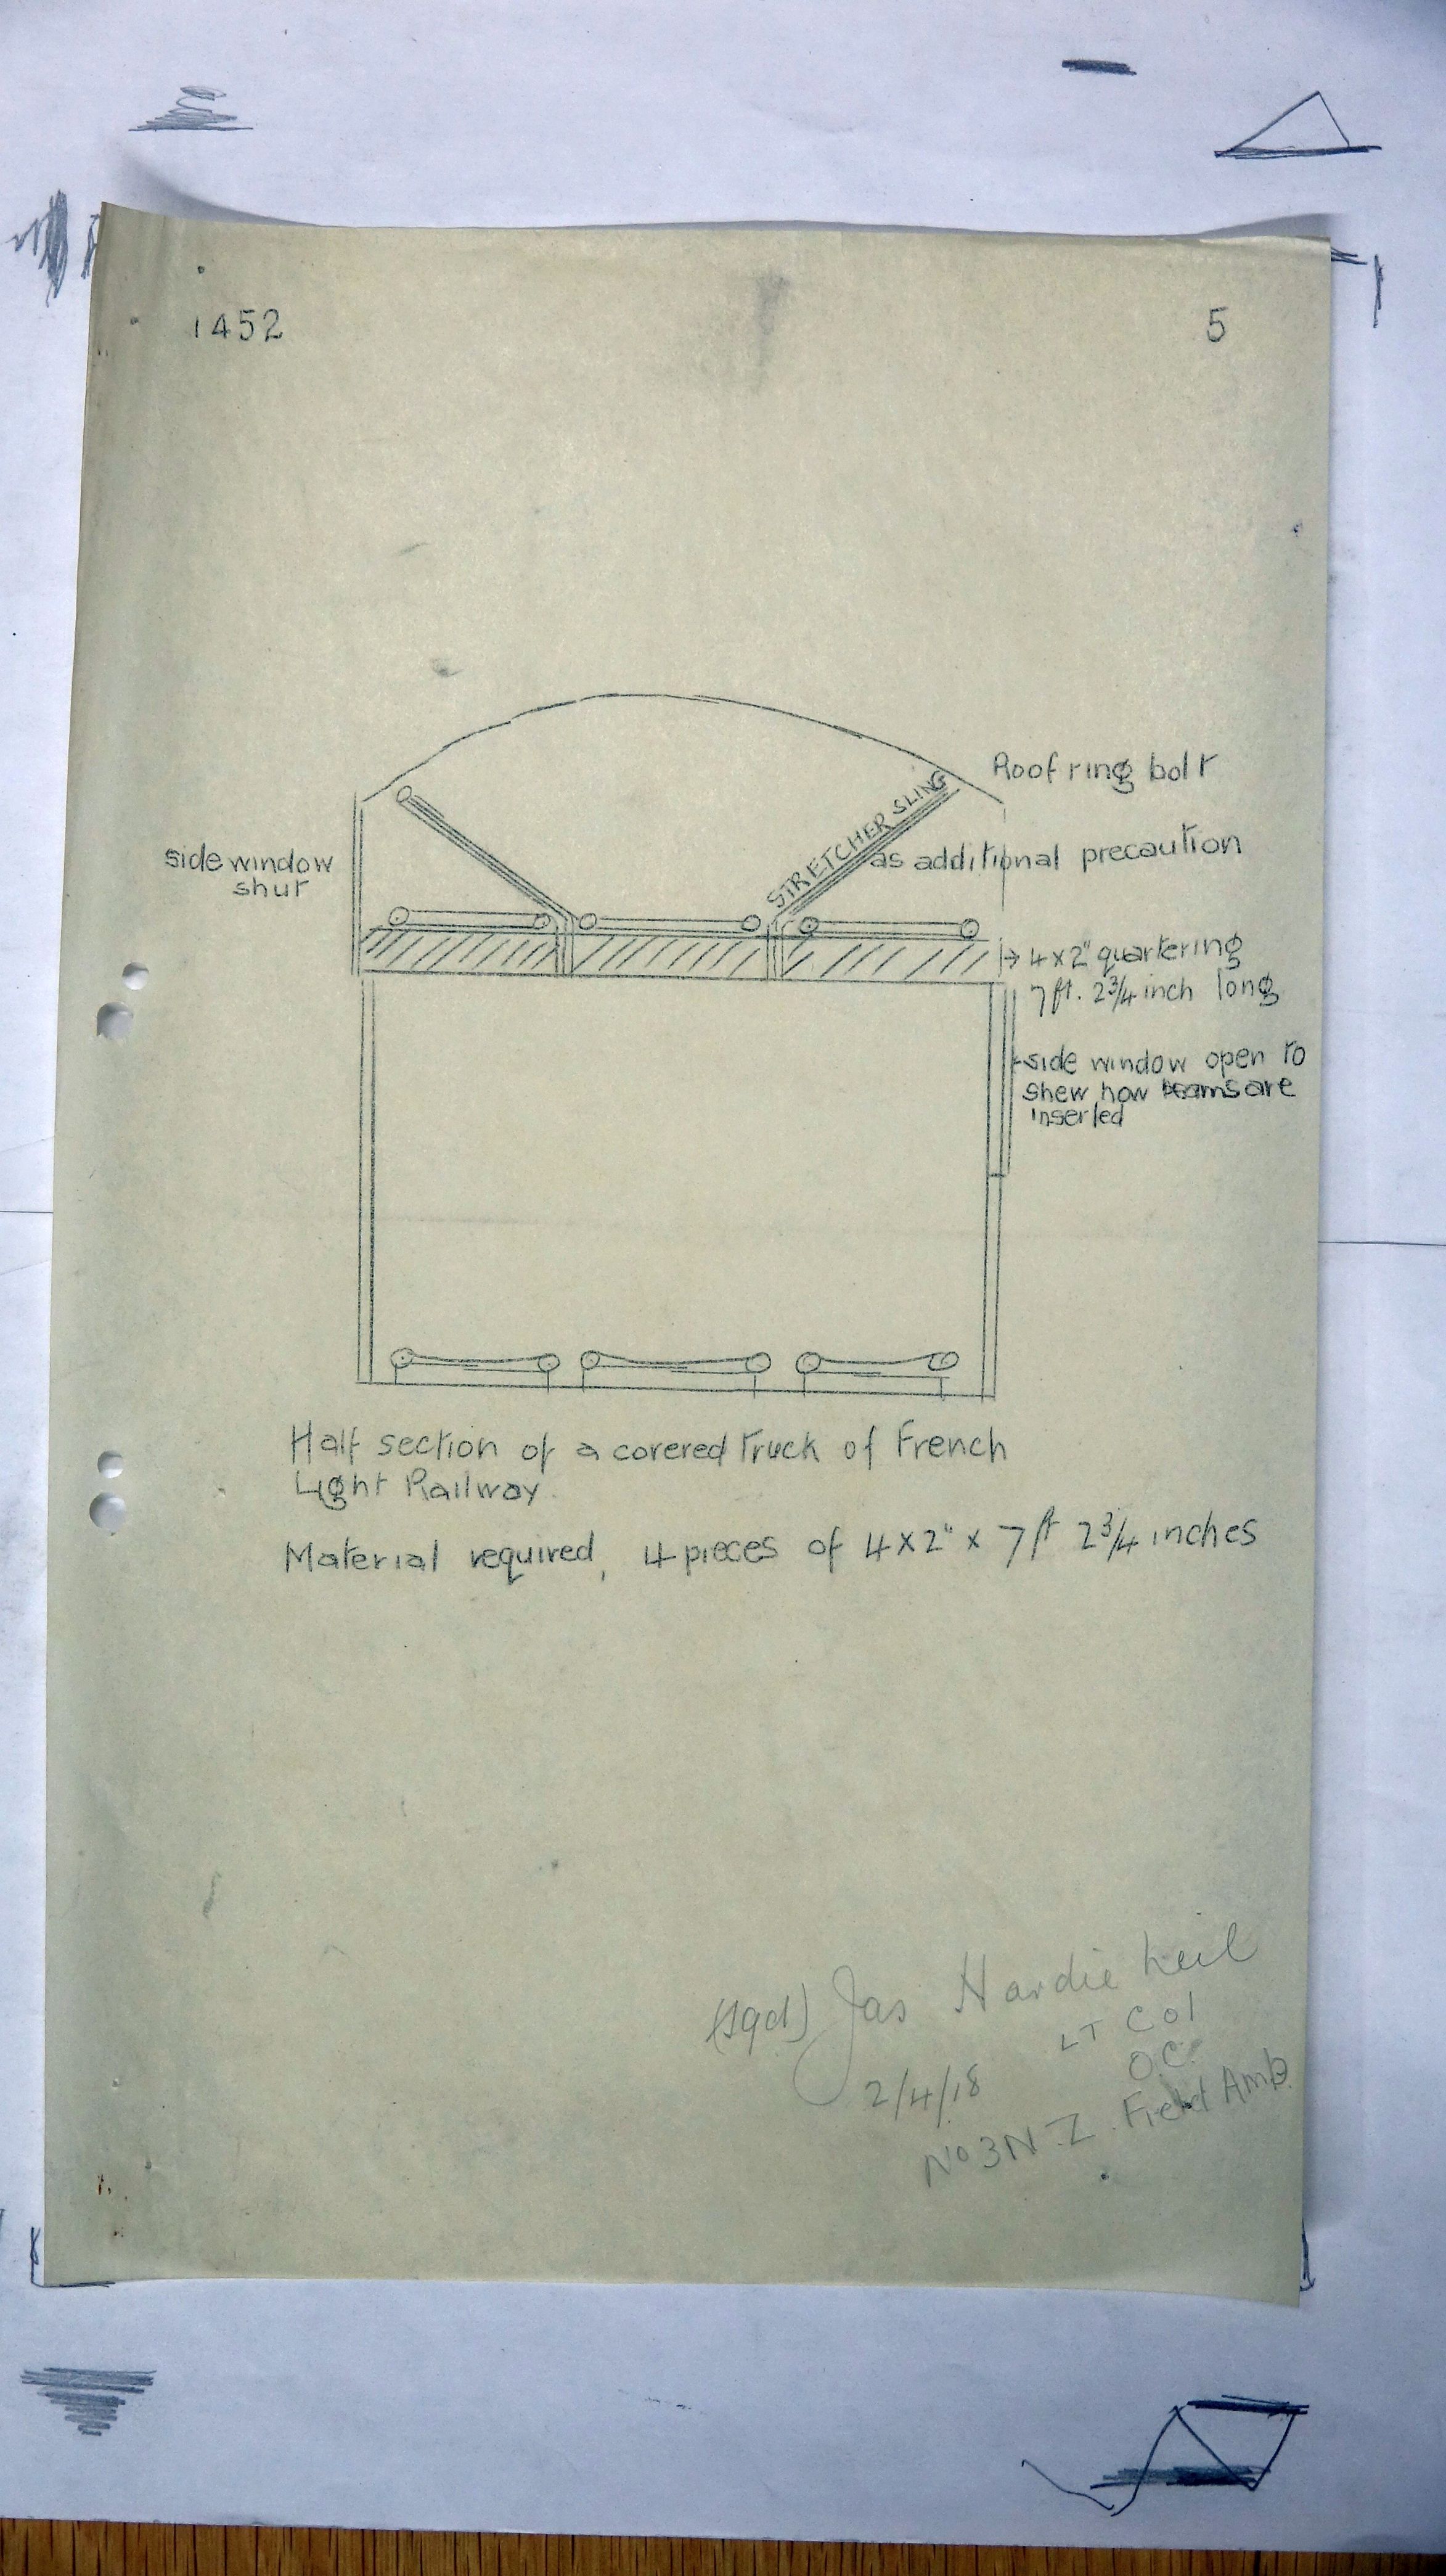 1452
5
Roof ring bolt
STRETCHER SLING
as additional precaution
side window
shut
4x2" quartering
7 ft. 2¾ inch long
side window open to
shew how beams are
inserted
Half section of a covered truck of French
Light Railway.
Material required, 4 pieces of 4x2" x 7 ft 2¾ inches
(sgd) Jas Hardie Neil
LT Col
OC
2/4/18
No 3 N.Z. Field Amb.